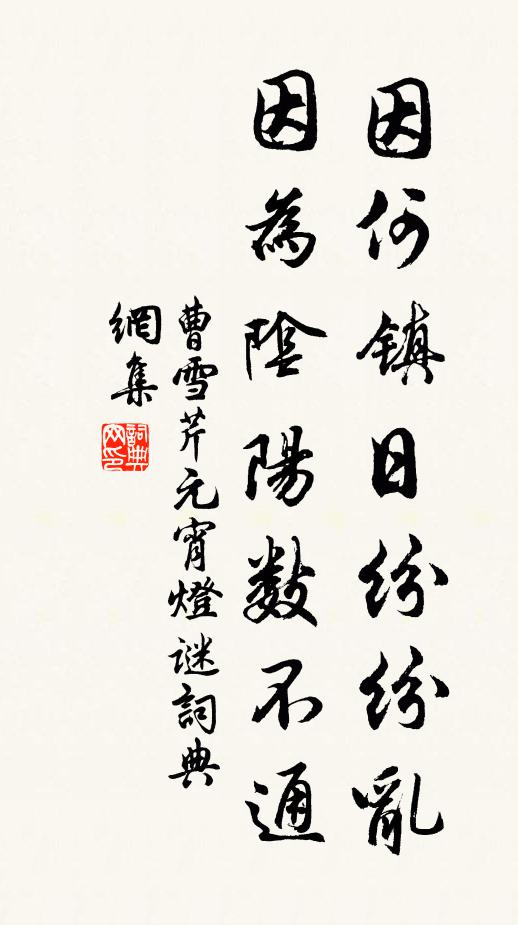 因何鎮日紛紛亂
因為陰陽数不通
曹雪芹元宵燈謎詞典
網集
詞典網印